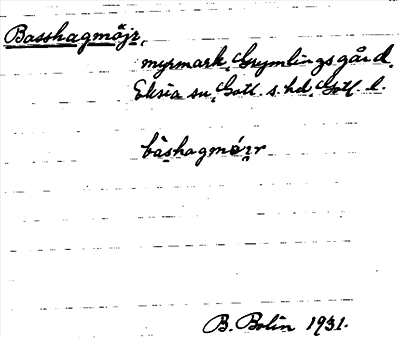 Basshagmöjr,
myrmark, Grymlingsgård,
Eksta sn, Gotl. s. hd, Gotl. l.
bàshagmöi̯r
B. Bolin 1931.